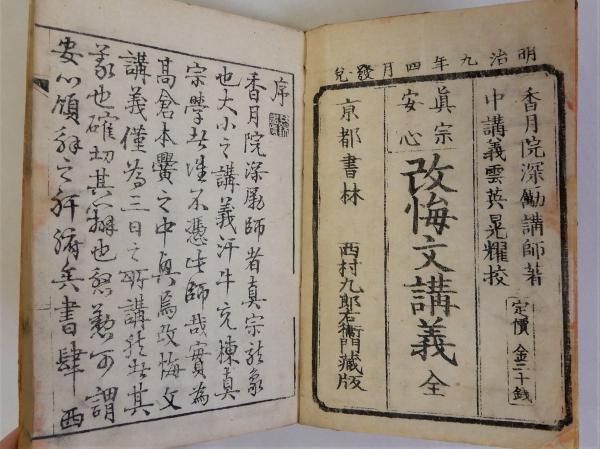 明治九年四月發兌
香月院深勵講師著
中講義雲英晃耀校
定價金二十銭
眞宗
安心
改悔文講義 全
京都書林 西村九郎右衛門藏版
序
香月院深勵師者真宗龍象
也大小之講義汗牛充棟真
宗學者誰不憑此師哉實為
髙倉本黌之中興焉改悔文
講義僅為三日之所講然其
義也確切其辯也懇懃可謂
安心領解之肝腑矣書肆西